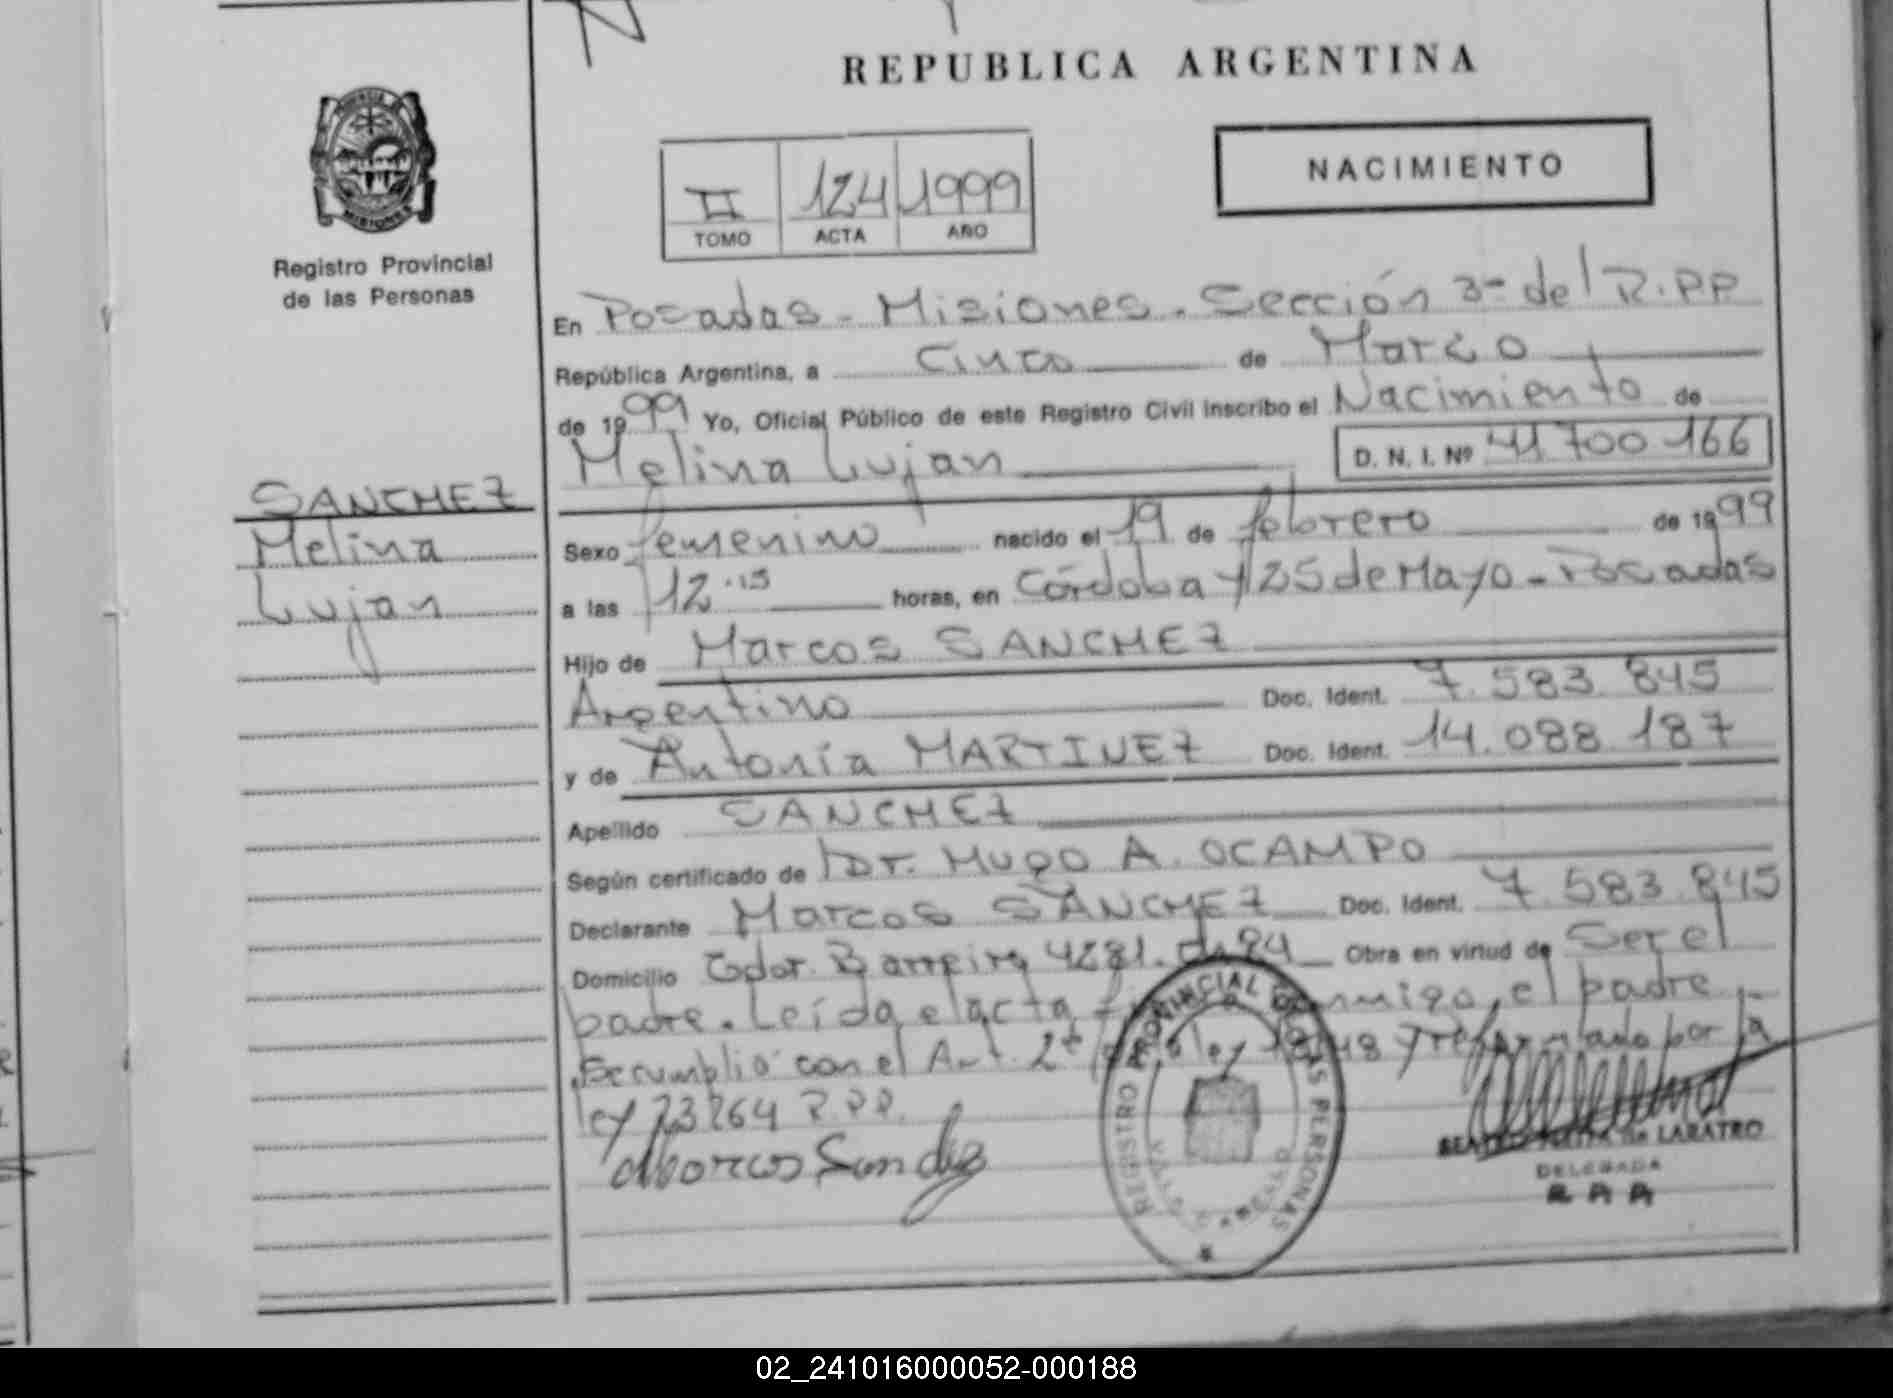 REPUBLICA ARGENTINA
NACIMIENTO
II 124 1999
TOMO ACTA AÑO
Registro Provincial
de las Personas
En Posadas - Misiones. Sección 3ª del R.PP
República Argentina, a Cinco de Marzo
de 1999 Yo, Oficial Público de este Registro Civil inscribo el Nacimiento de
Melina Lujan D. N. I. Nº 41 700 166
SANCHEZ
Melina
Lujan
Sexo femenino nacido el 19 de febrero de 1999
a las 12.15 horas, en Córdoba y 25 de Mayo - Posadas
Hijo de Marcos SANCHEZ
Argentino Doc. Ident. 7.583.845
y de Antonia MARTINEZ Doc. Ident. 14.088.187
Apellido SANCHEZ
Según certificado de Dr. HUGO A. OCAMPO
Declarante Marcos SANCHEZ Doc. Ident. 7.583.845
Domicilio Gdor. Barreiro Obra en virtud de Ser el
padre. Leída el acta el padre
Se cumplió con el Art. 2º ley y reformado por la
ley 23264 R.P.P.
Marcos Sanchez
REGISTRO PROVINCIAL DE LAS PERSONAS
de LABATRO
DELEGADA
02_241016000052-000188